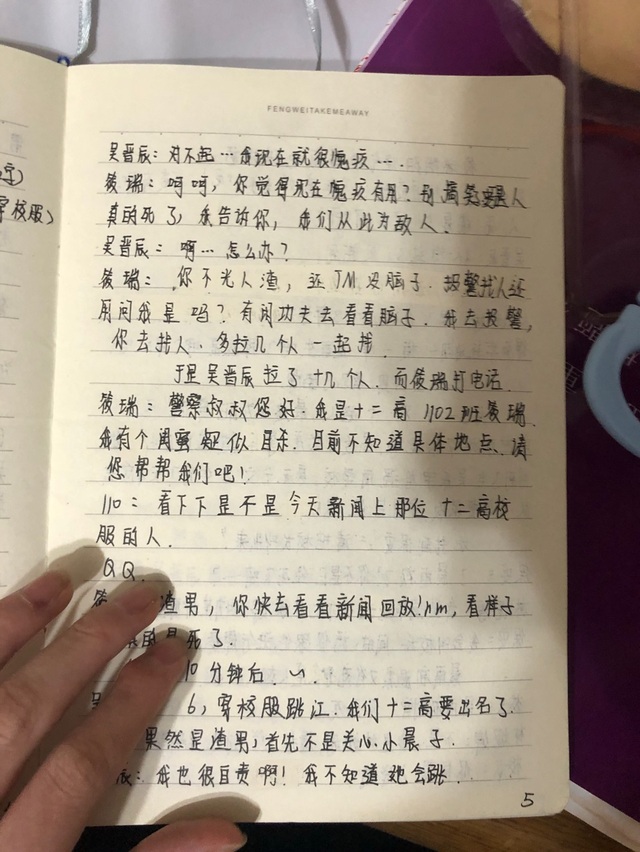 FENGWEITAKEMEAWAY
吴晋辰：对不起…我现在就很愧疚….
筱瑞：呵呵，你觉得现在愧疚有用？别搞笑
真的死了，我告诉你，我们从此为敌人.
吴晋辰：啊…怎么办？
筱瑞：你不光人渣，还TM没脑子.报警找人还
用问我是吗？有闲功夫去看看脑子.我去报警，
你去找人.多拉几个人一起找.
于是吴晋辰拉了十几个人.而筱瑞打电话.
筱瑞：警察叔叔您好.我是十二高1102班筱瑞.
我有个闺蜜疑似自杀.目前不知道具体地点.请
您帮帮我们吧！
110：看下下是不是今天新闻上那位十二高校
服的人.
QQ.
渣男，你快去看看新闻回放！nm，看样子
死了.
10分钟后
6，穿校服跳江.我们十二高要出名了.
果然是渣男，首先不是关心小晨子.
辰：我也很自责啊！我不知道她会跳.
5
穿校服）